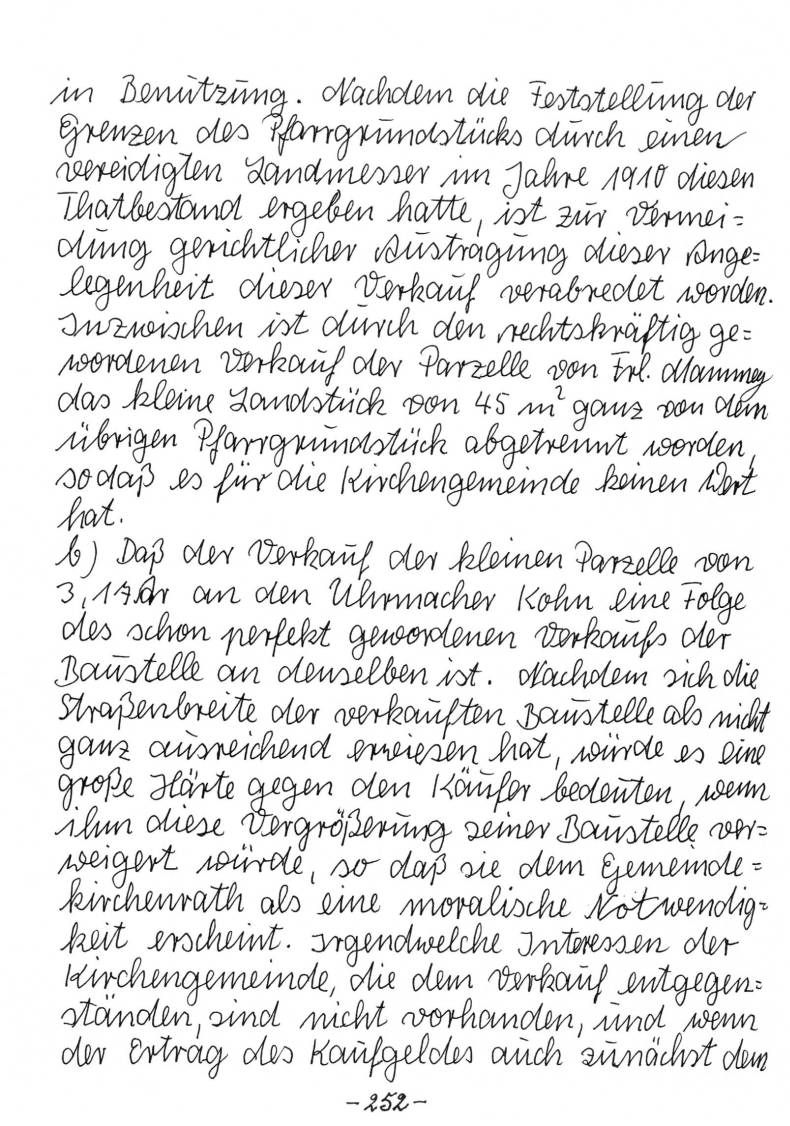 in Benutzung. Nachdem die Feststellung der
Grenzen des Pfarrgrundstücks durch einen
vereidigten Landmesser im Jahre 1910 diesen
Thatbestand ergeben hatte, ist zur Vermei=
dung gerichtlicher Austragung dieser Ange=
legenheit dieser Verkauf verabredet worden.
Inzwischen ist durch den rechtskräftig ge=
wordenen Verkauf der Parzelle von Frl. Mammey
das kleine Landstück von 45 m² ganz von dem
übrigen Pfarrgrundstück abgetrennt worden,
sodaß es für die Kirchengemeinde keinen Wert
hat.
b) Daß der Verkauf der kleinen Parzelle von
3,17 ar an den Uhrmacher Kohn eine Folge
des schon perfekt gewordenen Verkaufs der
Baustelle an denselben ist. Nachdem sich die
Straßenbreite der verkauften Baustelle als nicht
ganz ausreichend erwiesen hat, würde es eine
große Härte gegen den Käufer bedeuten, wenn
ihm diese Vergrößerung seiner Baustelle ver=
weigert würde, so daß sie dem Gemeinde=
kirchenrath als eine moralische Notwendig=
keit erscheint. Irgendwelche Interessen der
Kirchengemeinde, die dem Verkauf entgegen=
ständen, sind nicht vorhanden, und wenn
der Ertrag des Kaufgeldes auch zunächst dem
-252-